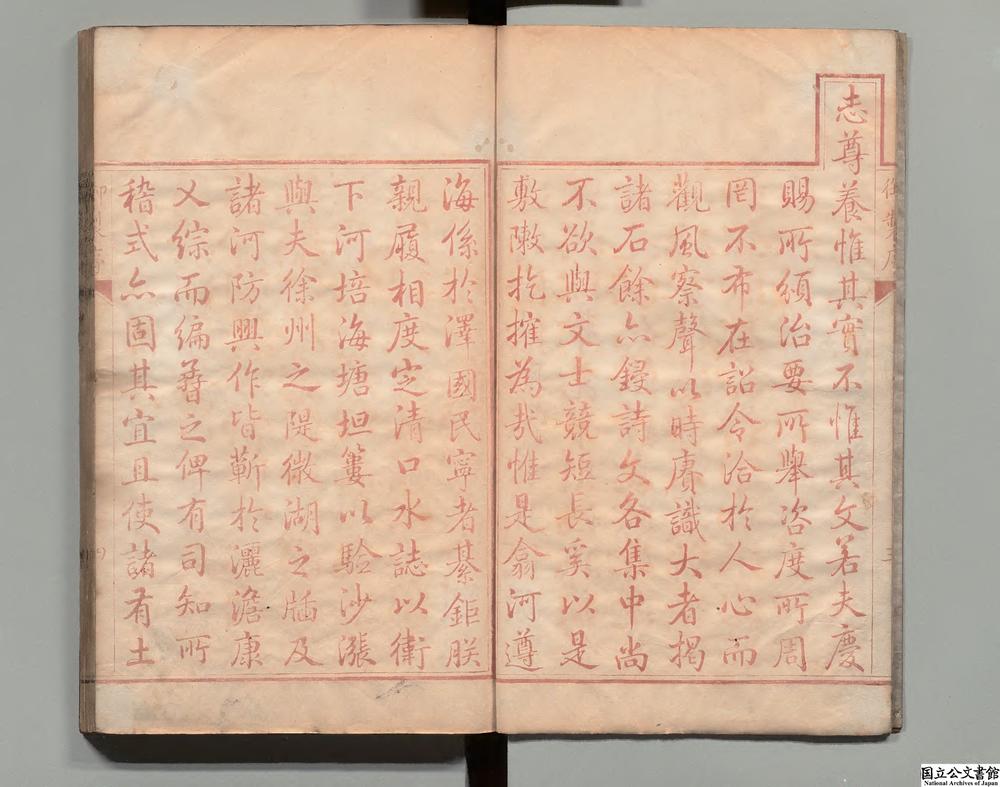 御製序
三
志尊養惟其實不惟其文若夫慶
賜所頒治要所舉咨度所周
罔不布在詔令洽於人心而
觀風察聲以時賡識大者揭
諸石餘亦鋟詩文各集中尚
不欲與文士競短長奚以是
敷敶扢搉為哉惟是翕河遵
海係於澤國民寧者綦鉅朕
親履相度㝎清口水誌以衛
下河培海塘坦簍以驗沙漲
與夫徐州之隄微湖之牐及
諸河防興作皆蘄於灑澹康
乂綜而編之俾有司知所
稽式亦固其宜且使諸有土
国立公文書館
National Archives of Japan